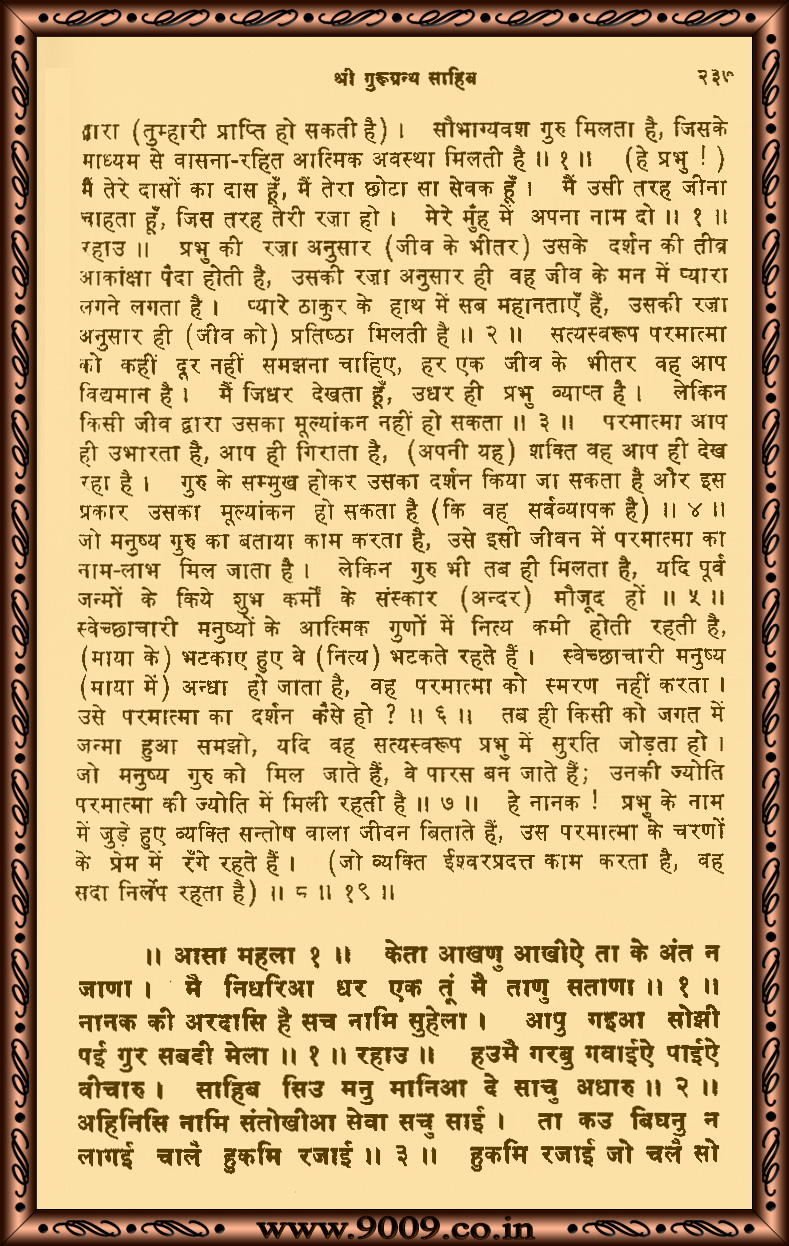 श्री गुरूग्रन्थ साहिब २३७
द्वारा (तुम्हारी प्राप्ति हो सकती है) । सौभाग्यवश गुरु मिलता है, जिसके
माध्यम से वासना-रहित आत्मिक अवस्था मिलती है ॥ १ ॥ (हे प्रभु ! )
मैं तेरे दासों का दास हूँ, मैं तेरा छोटा सा सेवक हूँ । मैं उसी तरह जीना
चाहता हूँ, जिस तरह तेरी रज़ा हो । मेरे मुँह में अपना नाम दो ॥ १ ॥
रहाउ ॥ प्रभु की रज़ा अनुसार (जीव के भीतर) उसके दर्शन की तीव्र
आकांक्षा पैदा होती है, उसकी रज़ा अनुसार ही वह जीव के मन में प्यारा
लगने लगता है । प्यारे ठाकुर के हाथ में सब महानताएँ हैं, उसकी रज़ा
अनुसार ही (जीव को) प्रतिष्ठा मिलती है ॥ २ ॥ सत्यस्वरूप परमात्मा
को कहीं दूर नहीं समझना चाहिए, हर एक जीव के भीतर वह आप
विद्यमान है । मैं जिधर देखता हूँ, उधर ही प्रभु व्याप्त है । लेकिन
किसी जीव द्वारा उसका मूल्यांकन नहीं हो सकता ॥ ३ ॥ परमात्मा आप
ही उभारता है, आप ही गिराता है, (अपनी यह) शक्ति वह आप ही देख
रहा है । गुरु के सम्मुख होकर उसका दर्शन किया जा सकता है और इस
प्रकार उसका मूल्यांकन हो सकता है (कि वह सर्वव्यापक है) ॥ ४ ॥
जो मनुष्य गुरु का बताया काम करता है, उसे इसी जीवन में परमात्मा का
नाम-लाभ मिल जाता है । लेकिन गुरु भी तब ही मिलता है, यदि पूर्व
जन्मों के किये शुभ कर्मों के संस्कार (अन्दर) मौजूद हों ॥ ५ ॥
स्वेच्छाचारी मनुष्यों के आत्मिक गुणों में नित्य कमी होती रहती है,
(माया के) भटकाए हुए वे (नित्य) भटकते रहते हैं । स्वेच्छाचारी मनुष्य
(माया में) अन्धा हो जाता है, वह परमात्मा को स्मरण नहीं करता ।
उसे परमात्मा का दर्शन कैसे हो ? ॥ ६ ॥ तब ही किसी को जगत में
जन्मा हुआ समझो, यदि वह सत्यस्वरूप प्रभु में सुरति जोड़ता हो ।
जो मनुष्य गुरु को मिल जाते हैं, वे पारस बन जाते हैं; उनकी ज्योति
परमात्मा की ज्योति में मिली रहती है ॥ ७ ॥ हे नानक ! प्रभु के नाम
में जुड़े हुए व्यक्ति सन्तोष वाला जीवन बिताते हैं, उस परमात्मा के चरणों
के प्रेम में रँगे रहते हैं । (जो व्यक्ति ईश्वरप्रदत्त काम करता है, वह
सदा निर्लेप रहता है) ॥ ८ ॥ १९ ॥
॥ आसा महला १ ॥ केता आखणु आखीऐ ता के अंत न
जाणा । मै निधरिआ धर एक तूं मै ताणु सताणा ॥ १ ॥
नानक की अरदासि है सच नामि सुहेला । आपु गइआ सोझी
पई गुर सबदी मेला ॥ १ ॥ रहाउ ॥ हउमै गरबु गवाईऐ पाईऐ
वीचारु । साहिब सिउ मनु मानिआ दे साचु अधारु ॥ २ ॥
अहिनिसि नामि संतोखीआ सेवा सचु साई । ता कउ बिघनु न
लागई चालै हुकमि रजाई ॥ ३ ॥ हुकमि रजाई जो चलै सो
www.9009.co.in